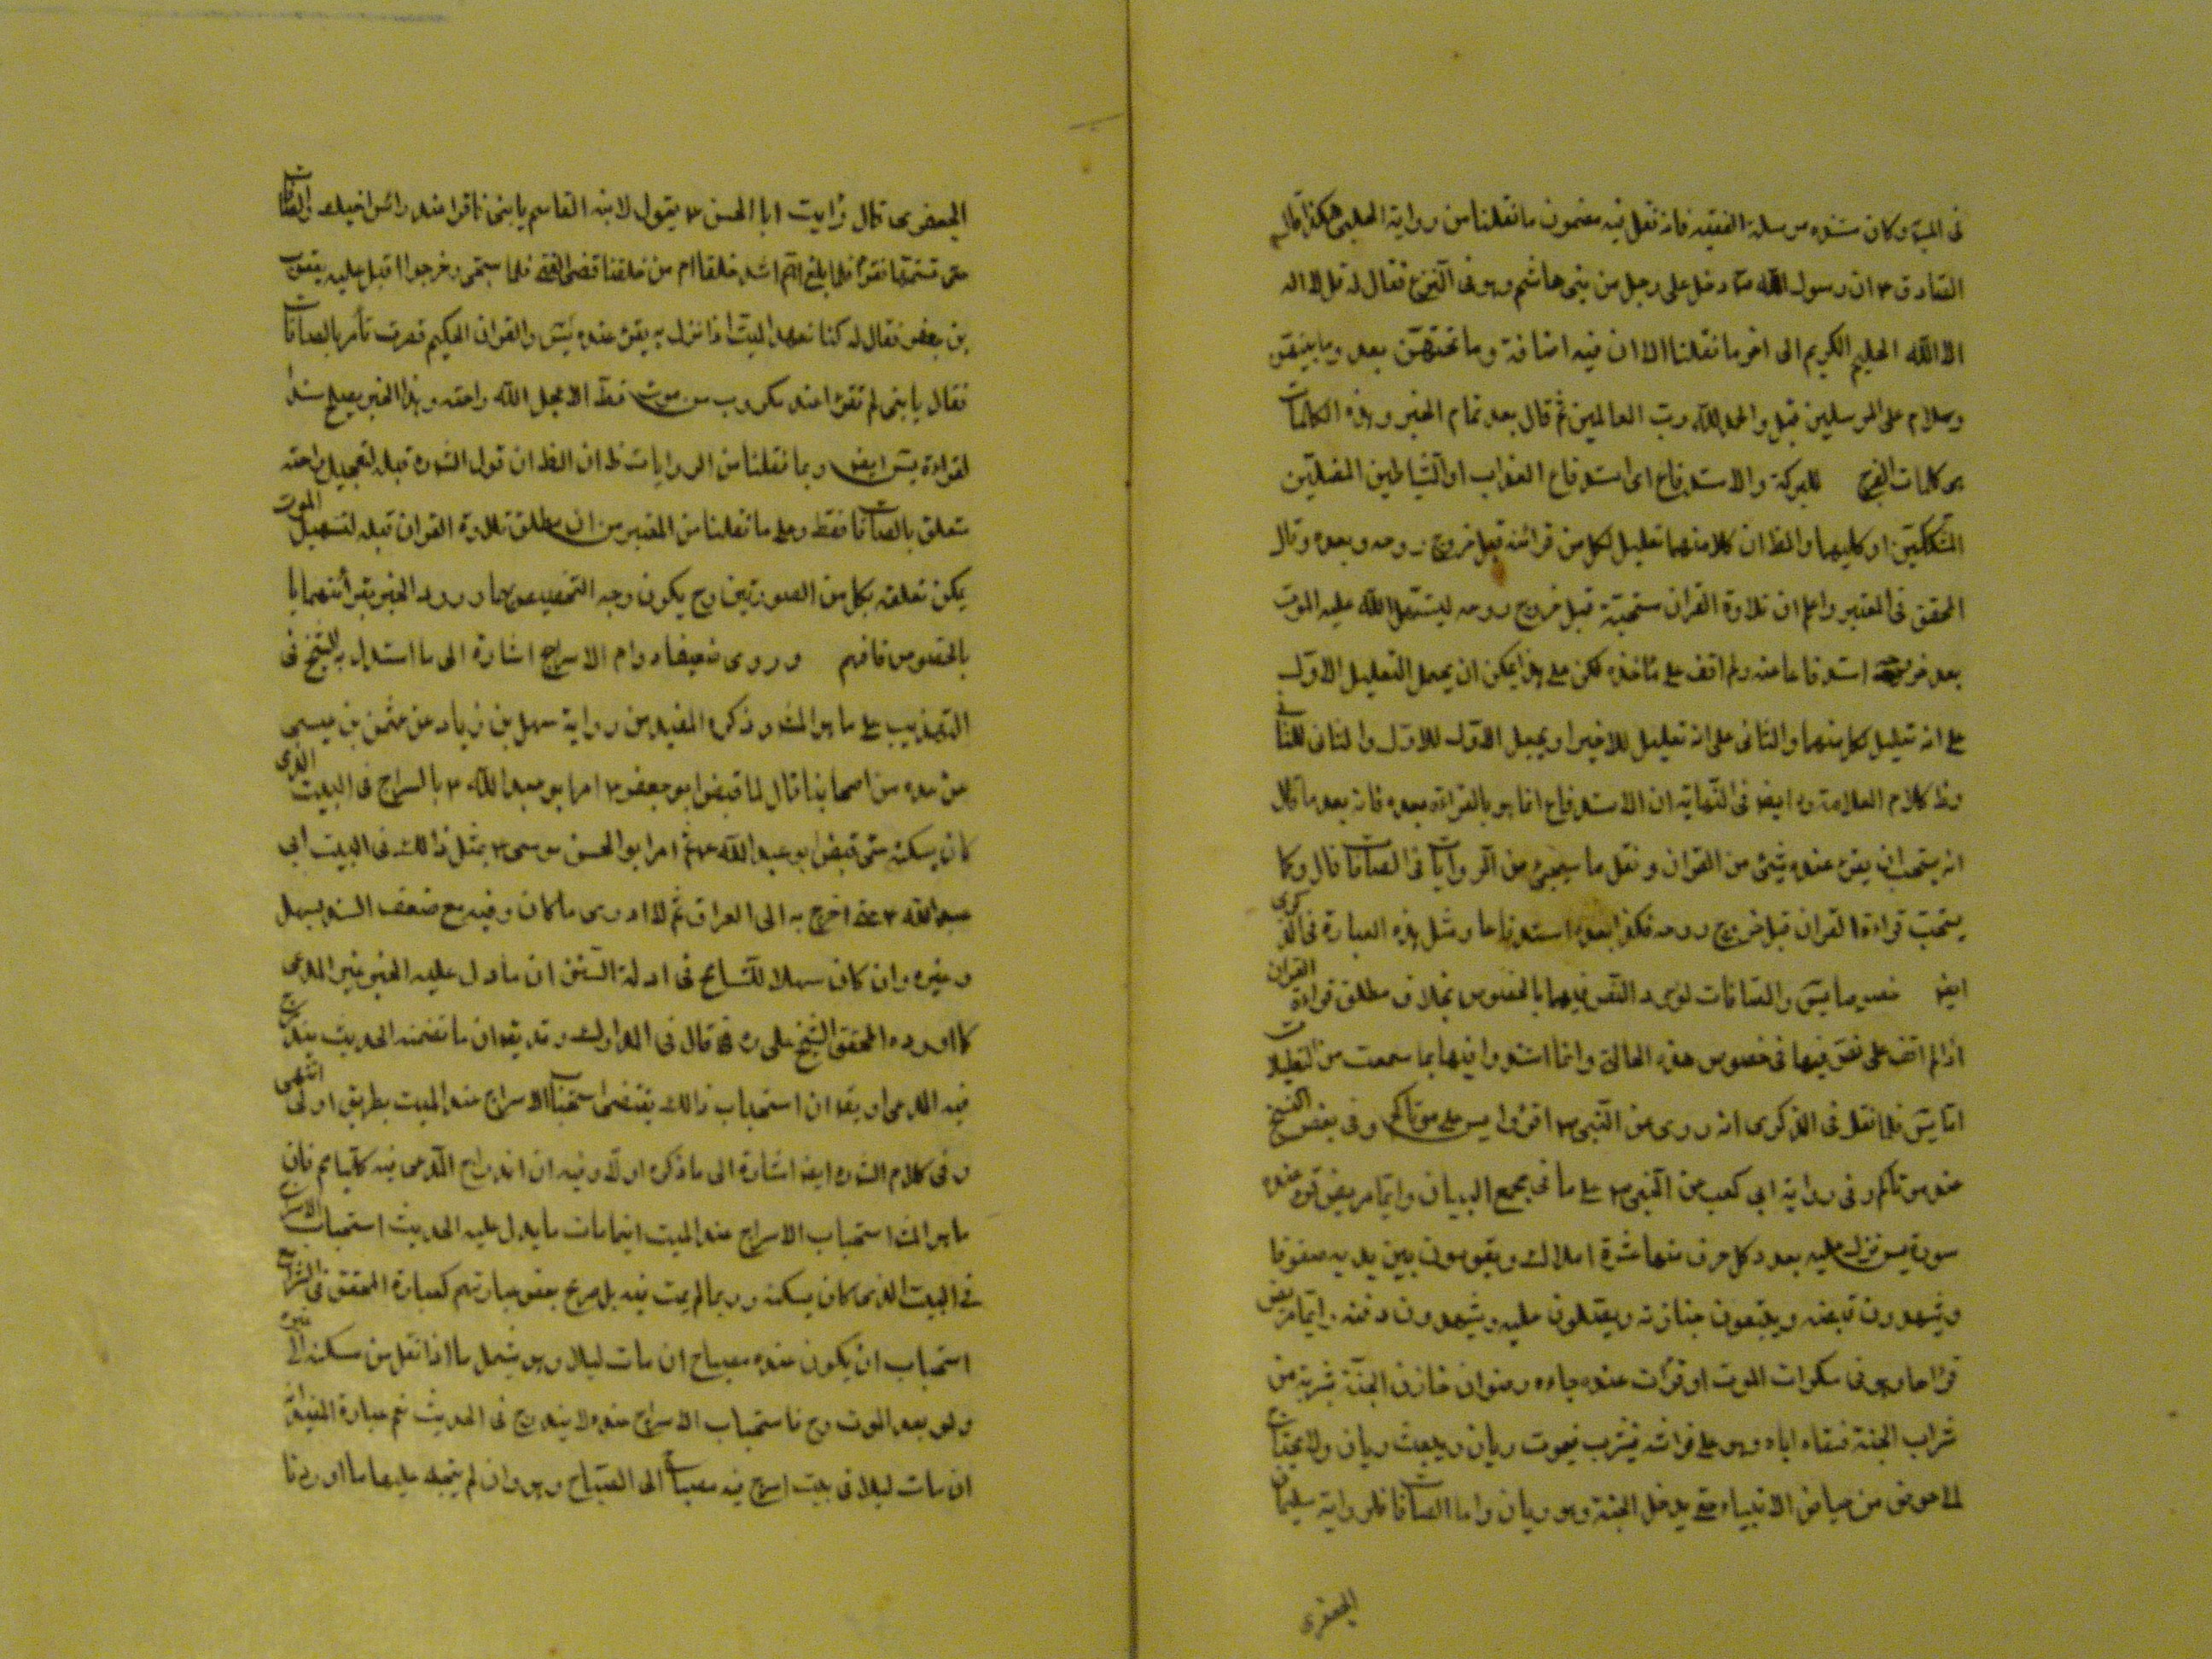 في الميت وكان مستنده مرسلة الفقيه فانه نقل فيه مضمون ما نقلنا من رواية الحلبي هكذا قال
الصادق ع ان رسول الله ص دخل على رجل من بني هاشم وهو في النزع فقال له قل لا اله
الا الله الحليم الكريم الى اخر ما نقلنا الا ان فيه اضافة وما تحتهن بعد وما بينهن
وسلام على المرسلين قبل والحمد لله رب العالمين ثم قال بعد تمام الخبر وهذه الكلمات
هي كلمات الفرج للبركة والاستدفاع اي استدفاع العذاب او الشياطين المضلين
المشككين او كليهما والظ ان كلا منهما تعليل لكل من قرائته قبل خروج روحه وبعده وقال
المحقق في المعتبر واعلم ان تلاوة القران مستحبة قبل خروج روحه ليسهل الله عليه الموت
بعد خروجه استدفاعا عنه ولم اقف على ماخذه لكن على هذا يمكن ان يحمل التعليل الاول
على انه تعليل لكل منهما والثاني على انه تعليل للاخير او يجعل الاول للاول والثاني للثاني
وظ كلام العلامة ره ايضا في النهاية ان الاستدفاع انما هو بالقراءة بعده فانه بعد ما قال
انه يستحب ان يقرء عنده شيئ من القران ونقل ما سيجئ من الروايات في الصافات قال وكما
يستحب قراءة القران قبل خروج روحه فكذا بعده استدفاعا ومثل هذه العبارة في الذكرى
ايضا خصوصا يس والصافات لورود النص فيهما بالخصوص بخلاف مطلق قراءة القران
اذ لم اقف على نص فيها في خصوص هذه الحالة وانما استندوا فيها بما سمعت من التعليلات
اما يس فلما نقل في الذكرى انه روى عن النبي ص اقرؤا يس على موتاكم وفي بعض النسخ
عند موتاكم وفي رواية ابي كعب عن النبي ص على ما في مجمع البيان وايما مريض قرء عنده
سورة يس نزل عليه بعدد كل حرف منها عشرة املاك ويقومون بين يديه صفوفا
ويشهدون قبضه ويتبعون جنازته ويصلون عليه ويشهدون دفنه وايما مريض
قراها وهو في سكرات الموت او قرئت عنده جاءه رضوان خازن الجنة بشربة من
شراب الجنة فسقاه اياه وهو على فراشه فيشرب فيموت ريان ويبعث ريان ولا يحتاج
الى حوض من حياض الانبياء حتى يدخل الجنة وهو ريان واما الصافات فلرواية سليمان
الجعفرى
الجعفرى قال رايت ابا الحسن ع يقول لابنه القاسم يا بني فاقرا عند راس اخيك والصافات
حتى تستتمها فقرء فلما بلغ اهم اشد خلقا ام من خلقنا قضى الفتى فلما سجى وخرجوا اقبل عليه يعقوب
بن جعفر فقال له كنا نعهد الميت اذا نزل به يقرء عنده يس والقران الحكيم فصرت تأمر بالصافات
فقال يا بني لم تقرء عند مكروب من موت قط الا عجل الله راحته وهذا الخبر يصلح سندا
لقراءة يس ايضا وبما نقلنا من الروايات ظ ان الظ ان قول الش ره قبله لتعجيل راحته
متعلق بالصافات فقط وعلى ما نقلنا من المعتبر من ان مطلق تلاوة القران قبله لتسهيل الموت
يمكن تعلقه بكل من الصورتين وح يكون وجه التخصيص بهما ورود الخبر بقرائتهما
بالخصوص فافهم وروى ضعيفا دوام الاسراج اشارة الى ما استدل به الشيخ في
التهذيب على ما هو المش وذكره المفيد من رواية سهل بن زياد عن عثمن بن عيسى
عن عدة من اصحابنا قال لما قبض ابو جعفر ع امر ابو عبد الله ع بالسراج في البيت الذي
كان يسكنه حتى قبض ابو عبد الله ع ثم امر ابو الحسن موسى ع بمثل ذالك في البيت ابي
عبد الله ع حتى اخرج به الى العراق ثم لا ادرى ما كان وفيه مع ضعف السند بسهل
وغيره وان كان سهلا للتسامح في ادلة السنن ان ما دل عليه الخبر غير المدعى
كما اورده المحقق الشيخ على ره قال في المدارك وقد يقال ان ما تضمنه الحديث يندرج
فيه المدعى او يقال ان استحباب ذالك يقتضى استحباب الاسراج عند الميت بطريق اولى انتهى
وفي كلام الش ره ايضا اشارة الى ما ذكره اولا وفيه ان اندراج المدعى فيه كليا مم فان
ما هو المش استحباب الاسراج عند الميت اينما مات وما يدل عليه الحديث استحباب الاسراج
في البيت الذى كان يسكنه وربما لم يمت فيه بل صريح بعض عباراتهم كعبارة المحقق في الشرايع
استحباب ان يكون عنده مصباح ان مات ليلا وهو يشمل ما اذا نقل من مسكنه الى غيره
ولو بعد الموت وح فاستحباب الاسراج عنده لا يندرج في الحديث نعم عبارة المفيد
ان مات ليلا في بيت اسرج فيه مصباح الى الصباح وهو وان لم يتجه عليها ما اوردنا